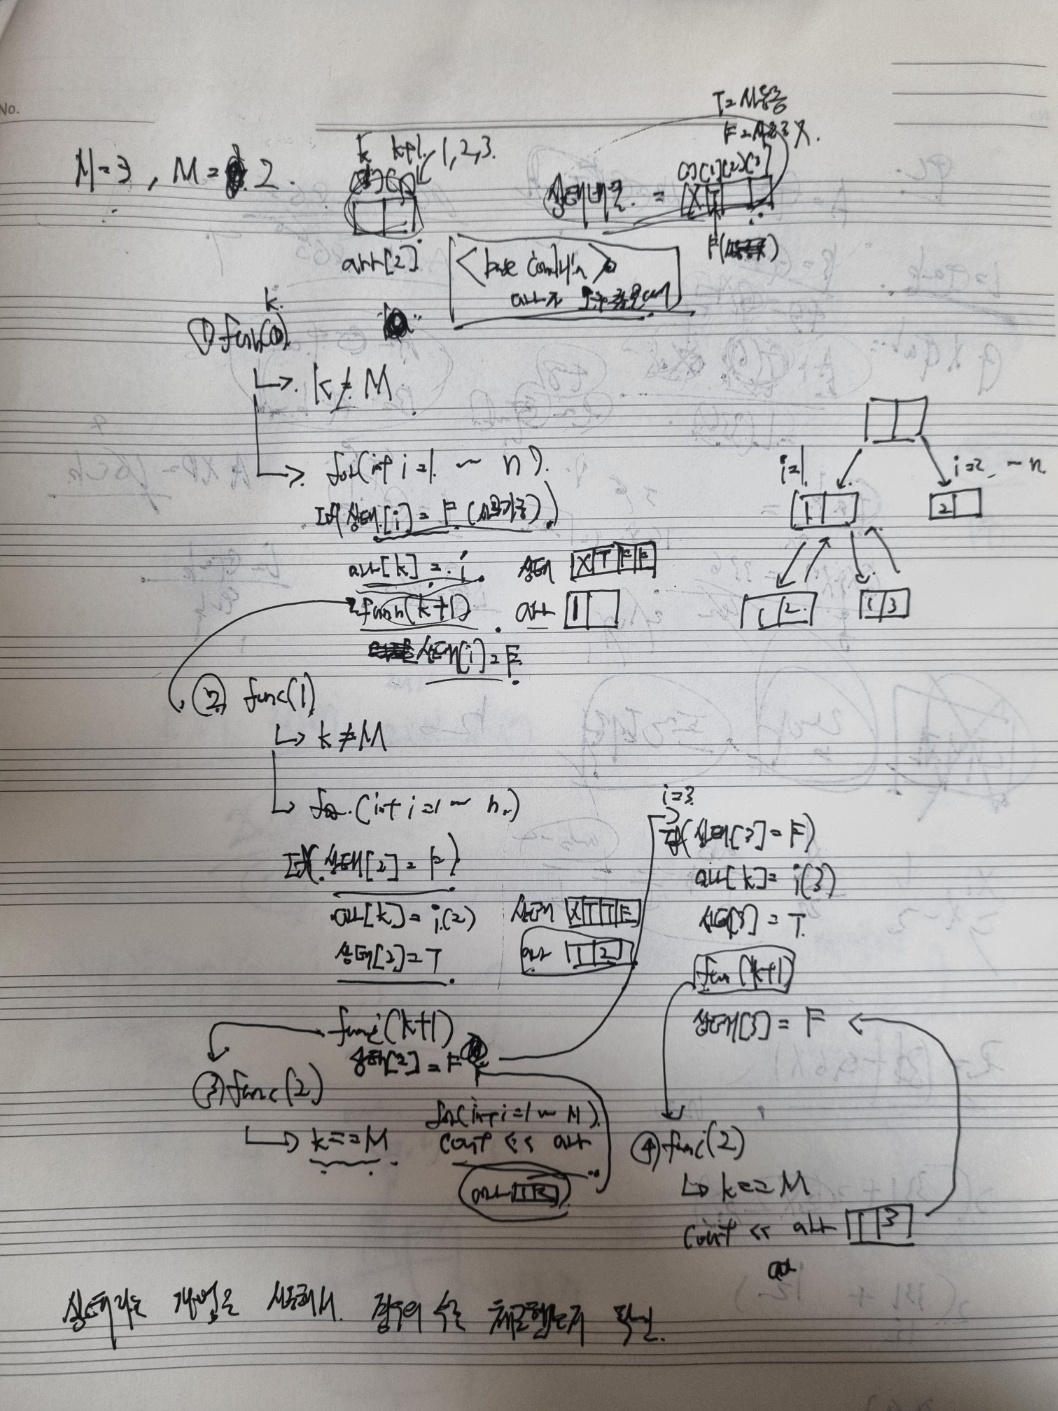 No.
N=3, M= 2.
k k+1, 1,2,3.
arr[2]
T=사용중
F=사용X.
[0][1][2][3]
상태배열 = X T
<base condition>
k
① func(0)
k≠M
for(int i=1 ~ n)
If(상태[i] = F (사용가능))
arr[k] = i
func(k+1)
상태[i] = F
상태 X T F F
arr 1
i=1
i=2 ~ n
1
2
1 2
1 3
② func(1)
k≠M
for (int i=1 ~ n)
If(상태[2] = F)
arr[k] = i(2)
상태[2] = T
상태 X T T F
arr 1 2
func(k+1)
상태[2] = F
③ func(2)
k==M
for(int i=1 ~ M)
cout << arr
arr 1 2
i=3
If(상태[3] = F)
arr[k] = i(3)
상태[3] = T
func(k+1)
상태[3] = F
④ func(2)
k==M
cout << arr 1 3
상태라는 개념을 사용해서. 경우의 수를 체크했는지 확인.